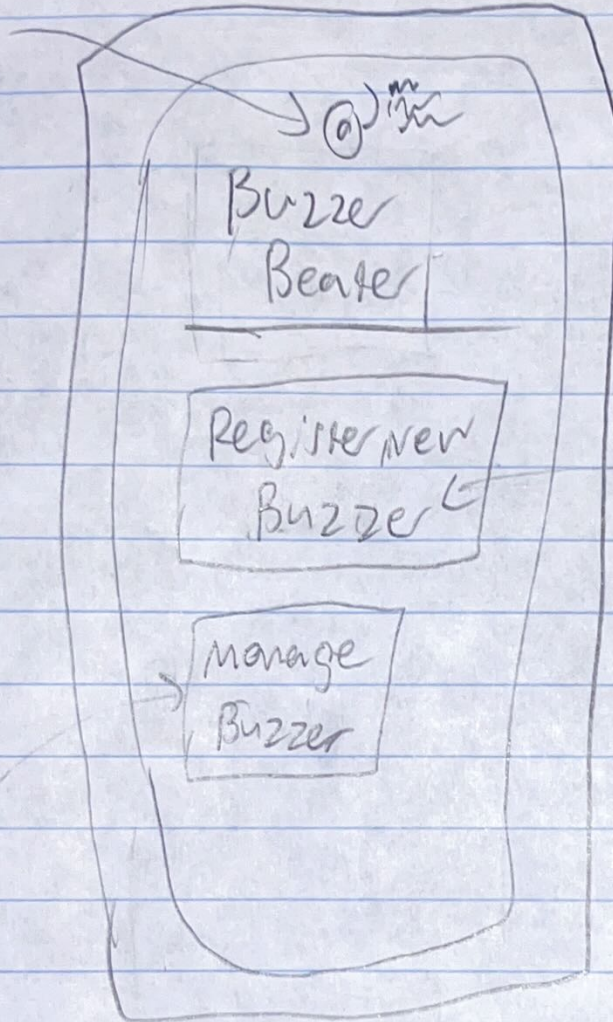 Buzzer
Beater
Register New
Buzzer
Manage
Buzzer